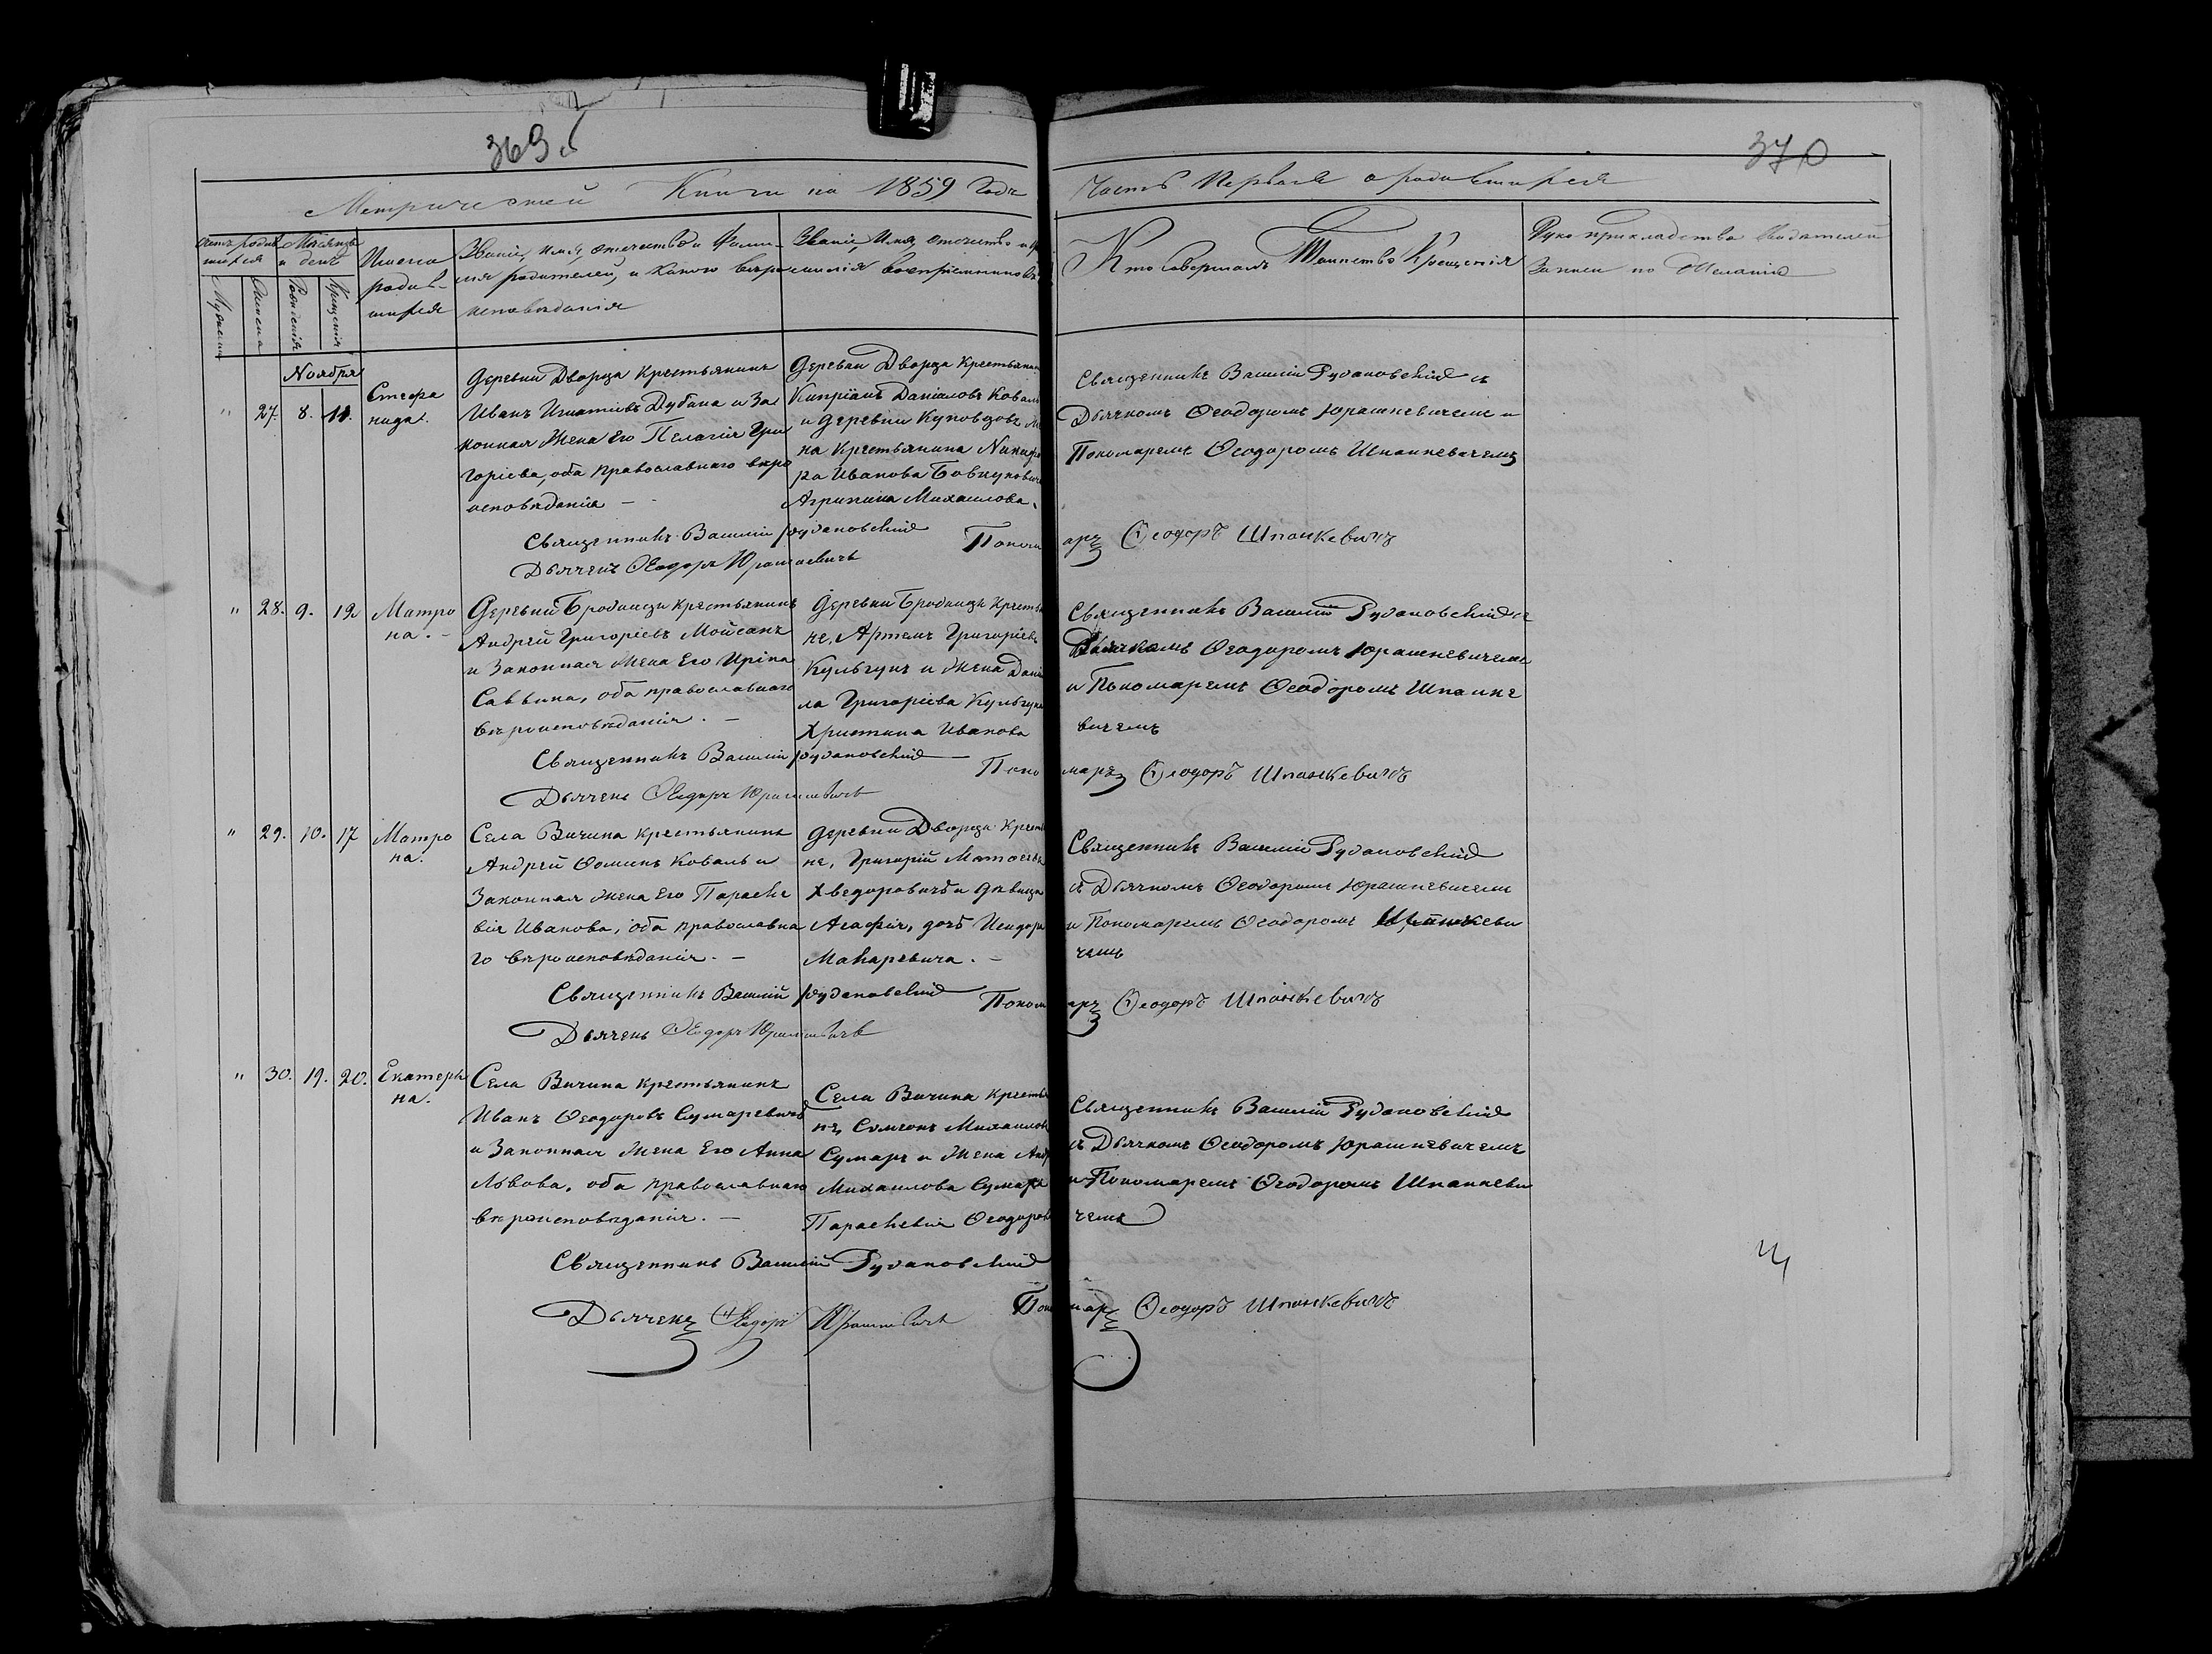 369 об
370
Метрической Книги на 1859 Годъ
Часть Первая о родившихся
Счетъ родив
шихся
Мѣсяцъ
и день
Мужеска
Женска
Рожденія
Крещенія
Имена
родив-
шихся
Званіе, имя, отечество и Фами-
лія родителей, и какого вѣро
исповѣданія
Званіе, Имя, отечество и ф
милія воспріемниковъ
Кто совершалъ Таинство Крещенія
Руко прикладство свидѣтелей
Записи по Желанію
Ноября
" 27. 8. 11.
Стефа
нида.
Деревни Дворца Крестьянинъ
Иванъ Игнатіевъ Дубина и За
конная Жена Его Пелагія Гри
горіева, оба Православнаго вѣро
исповѣданія —
Деревни Дворца Крестьянин
Кипріянъ Даніиловъ Коваль
и деревни Куповцовъ Же
на Крестьянина Никифо
ра Иванова Бовкуновича
Агрипина Михаилова.
Священникъ Василій Рудановскій съ
Дьячкомъ Ѳеодоромъ Юрашкевичемъ и
Пономаремъ Ѳеодоромъ Шпанкевичемъ
Священникъ Василій Рудановскій
Дьячекъ Ѳеодоръ Юрашкевичъ
Пономарь Ѳеодоръ Шпанкевичъ
" 28. 9. 12
Матро
на. -
Деревни Бродници крестьянинъ
Андрей Григоріевъ Мойсакъ
и Законная Жена Его Ирина
Саввина, оба православнаго
вѣроисповѣданія. —
Деревни Бродници Кресть
не, Артемъ Григоріевъ
Кульгунъ и Жена Дані
ла Григоріева Кульгуна
Христина Иванова
Священникъ Василій Рудановскій съ
Дьячкомъ Ѳеодоромъ Юрашкевичемъ
и Пономаремъ Ѳеодоромъ Шпанке
вичемъ
Священникъ Василій Рудановскій
Дьячекъ Ѳеодоръ Юрашкевичъ
Пономарь Ѳеодоръ Шпанкевичъ
" 29. 10. 17
Матро
на.
Села Вичина крестьянинъ
Андрей Ѳоминъ Коваль и
Законная Жена Его Параске
вія Иванова, оба православна
го вѣроисповѣданія. —
Деревни Дворца Кресть
не, Григорій Матѳеевъ
Хведоровичъ и дѣвица
Агафія, дочь Исидора
Макаревича. —
Священникъ Василій Рудановскій
съ Дьячкомъ Ѳеодоромъ Юрашкевичемъ
и Пономаремъ Ѳеодоромъ Шпанкеви
чемъ
Священникъ Василій Рудановскій
Дьячекъ Ѳеодоръ Юрашкевичъ
Пономарь Ѳеодоръ Шпанкевичъ
" 30. 19. 20.
Екатери
на.
Села Вичина крестьянинъ
Иванъ Ѳеодоровъ Сумаревичъ
и Законная Жена Его Анна
Львова, оба православнаго
вѣроисповѣданія. —
Села Вичина Кресть
не, Симеонъ Михаилов
Сумаръ и Жена Андр
Михаилова Сумара
Параскевія Ѳеодоров
Священникъ Василій Рудановскій
съ Дьячкомъ Ѳеодоромъ Юрашкевичемъ
и Пономаремъ Ѳеодоромъ Шпанкеви
чемъ
Священникъ Василій Рудановскій
Дьячекъ Ѳеодоръ Юрашкевичъ
Пономарь Ѳеодоръ Шпанкевичъ